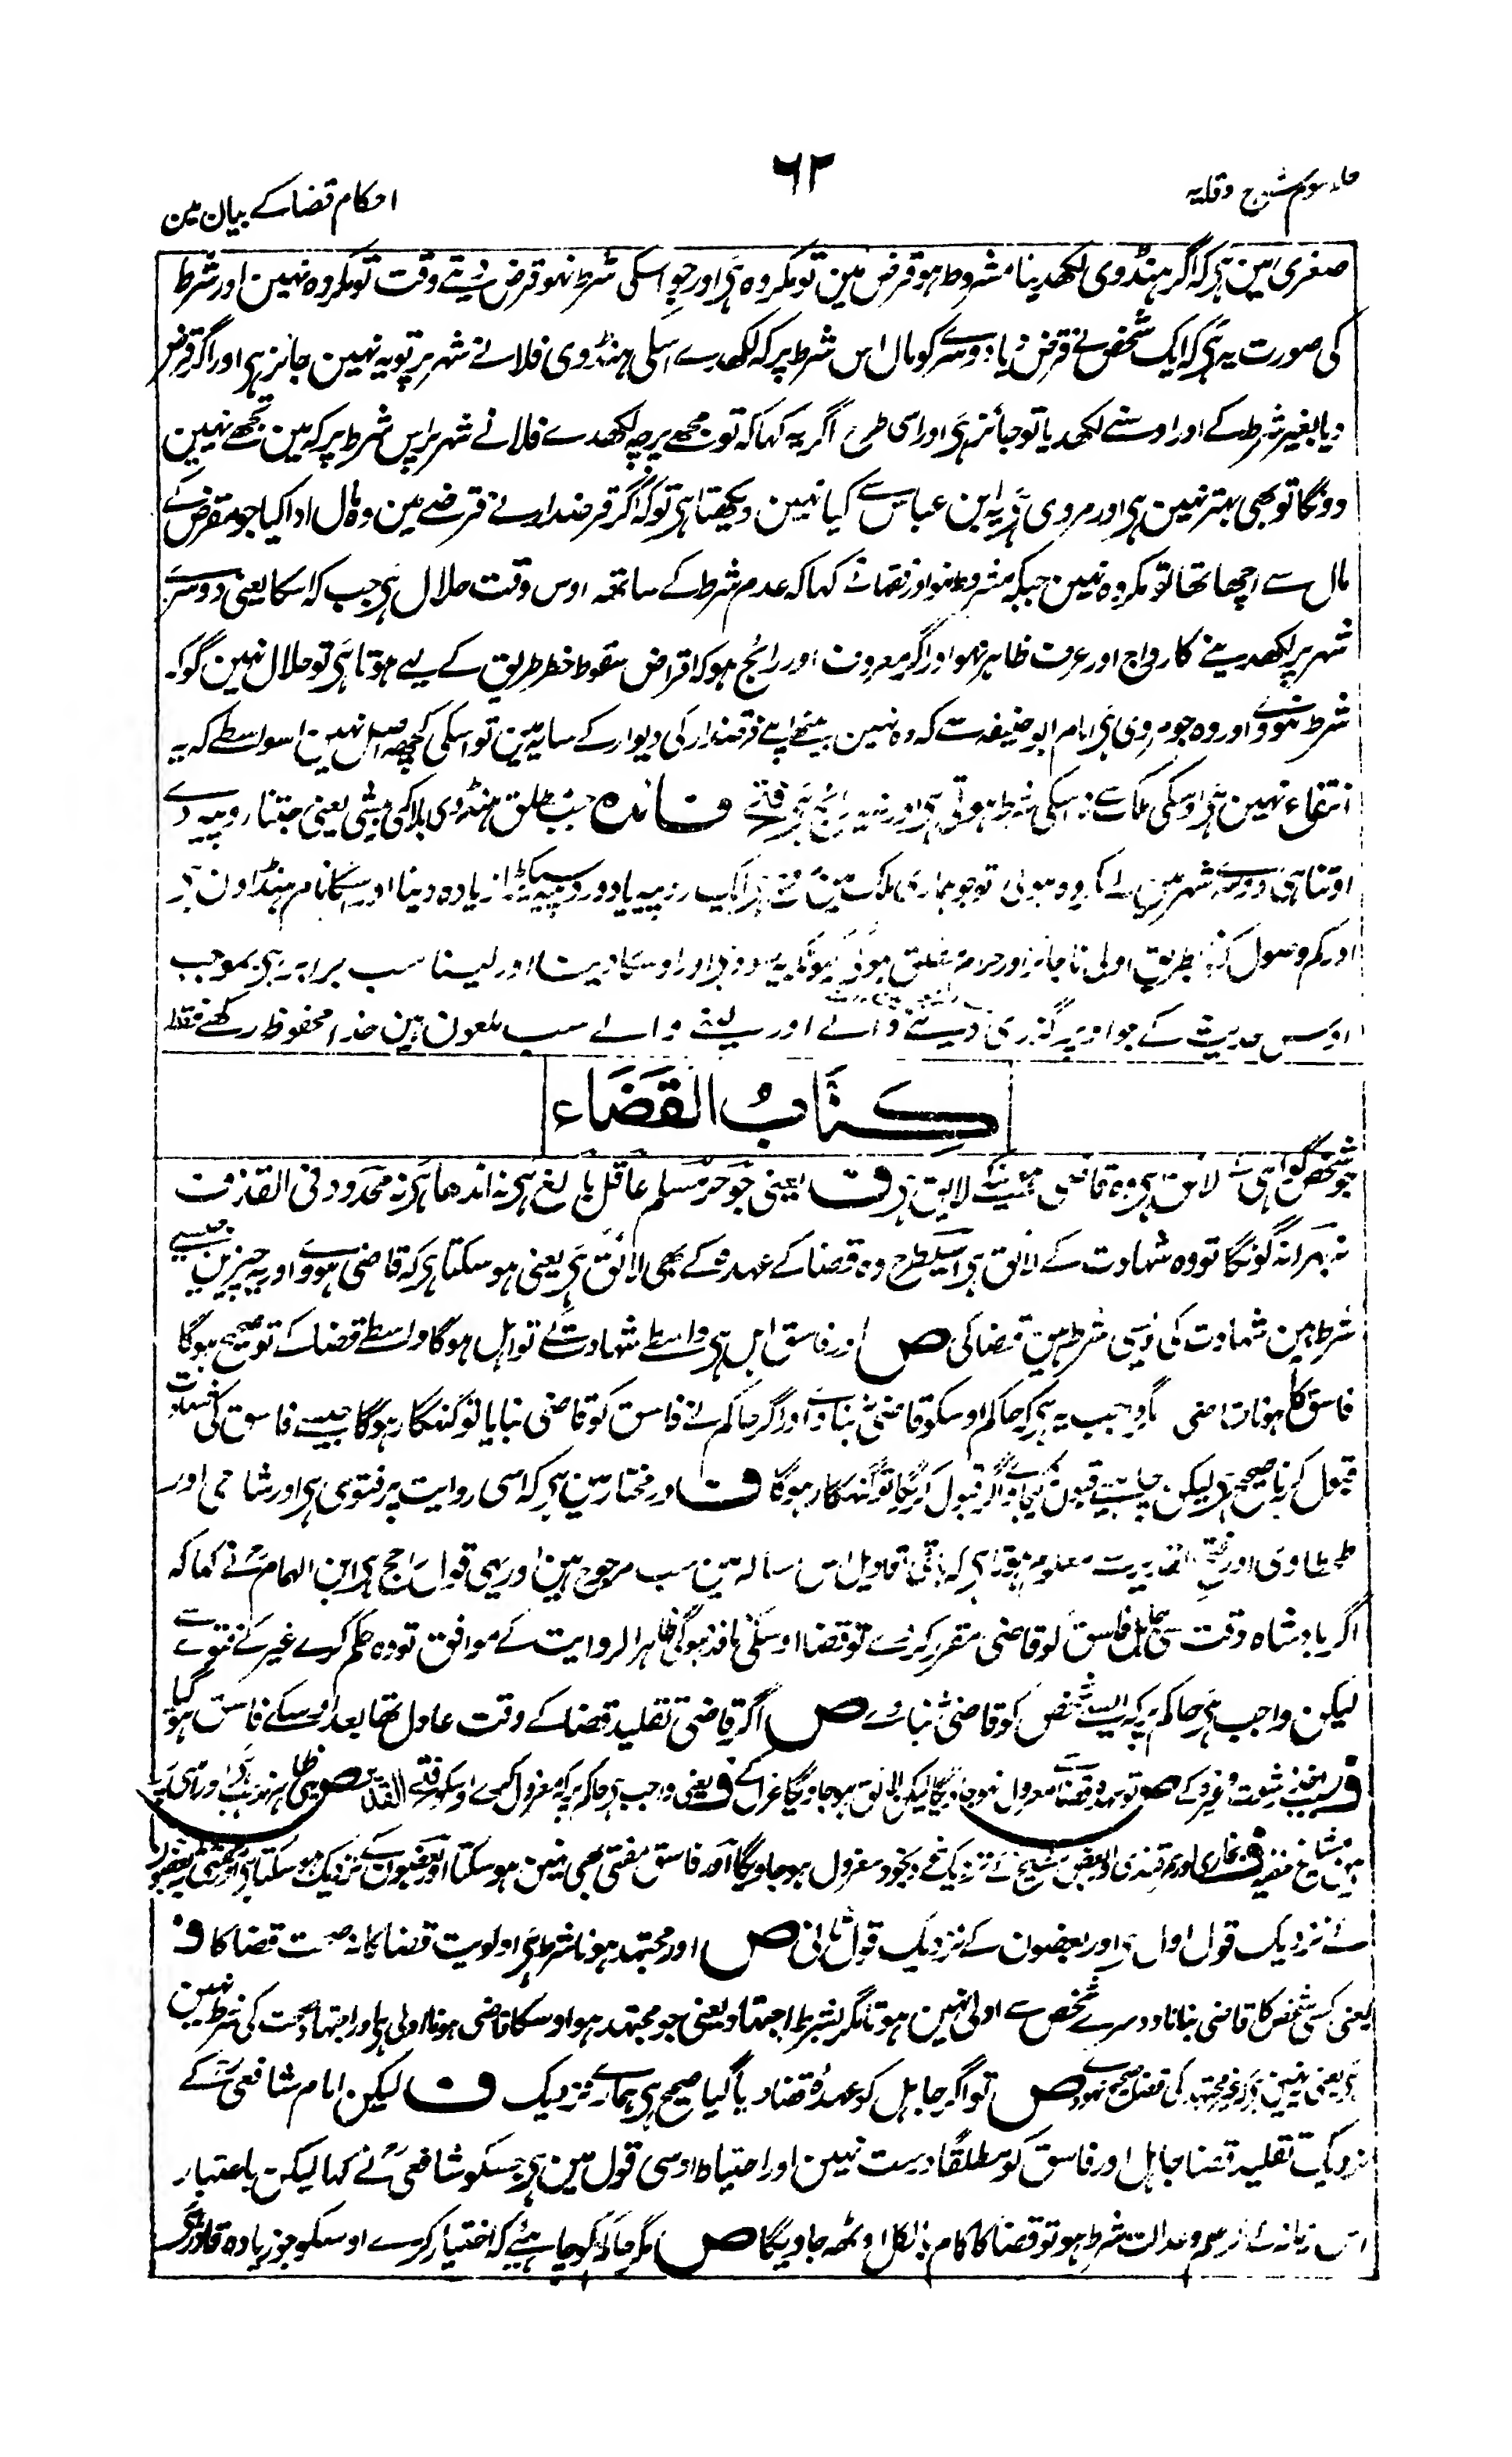 ۶۲
جلد سوم شرح وقایه
احکام قضا کے بیان مین
صغری مین ہی کہ اگر ہنڈوی لکھدینا مشروط ہو قرض مین تو مکروہ ہی اور جو اسکی شرط نہو قرض دیتے وقت تو مکروہ نہین اور شرط
کی صورت یہ ہی کہ ایک شخص نے قرض دیا دوسرے کو مال اس شرط پر کہ لکھدے اسکی ہنڈوی فلانے شہر پر تو یہ نہین جائز ہی اور اگر قرض
دیا بغیر شرط کے اور اوسنے لکھدیا تو جائز ہی اور اسی طرح اگر یہ کہا کہ تو مجھے پرچہ لکھدے فلانے شہر پر اس شرط پر کہ مین تجھے نہین
دونگا تو بھی بہتر نہین ہی اور مروی ہی یہ ابن عباس سے کیا نہین دیکھتا ہی تو کہ اگر قرضدار نے قرضے مین وہ مال ادا کیا جو مقرض کے
مال سے اچھا تھا تو مکروہ نہین جبکہ مشروط نہو اور فقہا نے کہا کہ عدم شرط کے ساتھ اوس وقت حلال ہی جب کہ اسکا یعنی دوسرے
شہر پر لکھدینے کا رواج اور عرف ظاہر نہو اور اگر معروف اور رائج ہو کہ اقراض سقوط خطر طریق کے لیے ہوتا ہی تو حلال نہین گو کہ
شرط نہووے اور وہ جو مروی ہی امام ابو حنیفہ سے کہ وہ نہین بیٹھے اپنے قرضدار کی دیوار کے سایہ مین تو اسکی کچھ اصل نہین اسواسطے کہ یہ
انتفاع نہین ہی اوسکی ملک سے نہ اسکی شرط ہوتی ہی اور نہ یہ رائج ہی فتح فائدہ جب مطلق ہنڈوی بلا کمی بیشی یعنی جتنا روپیہ دے
اوتنا ہی دوسرے شہر مین لے مکروہ ہوئی تو جو ہماری ملک مین ایک روپیہ یا دو روپیہ سیکڑا زیادہ دینا اور اسکا نام ہنڈاون ہی
اور کم وصول کرنا بطریق اولی ناجائز اور حرام مطلق ہوگی کیونکہ یہ سود ہی اور اوسکا دینا اور لینا سب برابر ہی بموجب
اوس حدیث کے جو اوپر گذری دینے والے اور لینے والے سب ملعون ہین خدا محفوظ رکھے فقط
كِتَابُ القَضَاء
جو شخص گواہی کے لائق ہی وہ قاضی ہونے کے لایق ہی ف یعنی جو حر مسلم عاقل بالغ ہی نہ اندھا ہی نہ محدود فی القذف
نہ بہرا نہ گونگا تو وہ شہادت کے لائق ہی اسیطرح وہ قضا کے عہدہ کے بھی لائق ہی یعنی ہو سکتا ہی کہ قاضی ہووے اور یہ چیزین جیسے
شرط ہین شہادت کی ویسی شرط ہین قضا کی ص اور فاسق اہل ہی واسطے شہادت کے تو اہل ہوگا واسطے قضا کے تو صحیح ہوگا
فاسق کا ہونا قاضی مگر واجب یہ ہی کہ حاکم اوسکو قاضی نہ بناوے اور اگر حاکم نے فاسق کو قاضی بنایا تو گنہگار ہوگا جیسے فاسق کی شہادت
قبول کرنا صحیح ہی لیکن چاہیے قبول نہ کیجاوے اگر قبول کریگا تو گنہگار ہوگا ف در مختار مین ہی کہ اسی روایت پر فتوی ہی اور شامی اور
طحطاوی اور فتح القدیر سے معلوم ہوتا ہی کہ باقی اقاویل اس مسالہ مین سب مرجوح ہین اور یہی قول راجح ہی ابن الہمام نے کہا کہ
اگر بادشاہ وقت کسی جاہل فاسق کو قاضی مقرر کردے تو قضا اوسکی نافذ ہوگی ظاہر الروایت کے موافق تو وہ حکم کرے غیر کے فتوے سے
لیکن واجب ہی حاکم پر کہ ایسے شخص کو قاضی نہ بناوے ص اگر قاضی تقلید قضا کے وقت عادل تھا بعد اوسکے فاسق ہوگیا
ف بسبب اخذ رشوت وغیرہ کے ص تو عہدہ قضا سے معزول نہو جاویگا لیکن لائق ہو جاویگا عزل کے ف یعنی واجب ہی حاکم پر کہ معزول کرے اوسکو فتح القدیر ص یہی ظاہر مذہب ہی اور اسی پر
ہین مشائخ حنفیہ ف بخاری اور سمرقندی اور بعض مشائخ کے نزدیک خود بخود معزول ہو جاویگا اور فاسق مفتی بھی نہین ہو سکتا اور بعضون کے نزدیک ہو سکتا ہی
کے نزدیک قول اول اور بعضون کے نزدیک قول ثانی ص اور مجتہد ہونا شرط ہی اولویت قضا کا نہ صحت قضا کا ف
یعنی کسی شخص کا قاضی بنانا دوسرے شخص سے اولی نہین ہوتا مگر بشرط اجتہاد یعنی جو مجتہد ہو اوسکا قاضی ہونا اولی ہی اور اجتہاد صحت کی شرط نہین
ہی یعنی یہ نہین ہی کہ غیر مجتہد کی قضا صحیح نہو ص تو اگر جاہل کو عہدہ قضا دیا گیا صحیح ہی ہمارے نزدیک ف لیکن امام شافعی کے
نزدیک تقلید قضا جاہل اور فاسق کو مطلقًا درست نہین اور احتیاط اوسی قول مین ہی جسکو شافعی نے کہا لیکن باعتبار
اس زمانہ کے اگر علم و عدالت شرط ہو تو قضا کا کام بالکل اوٹھ جاویگا ص مگر حاکم کو چاہیئے کہ اختیار کرے اوسکو جو زیادہ قادر ہو